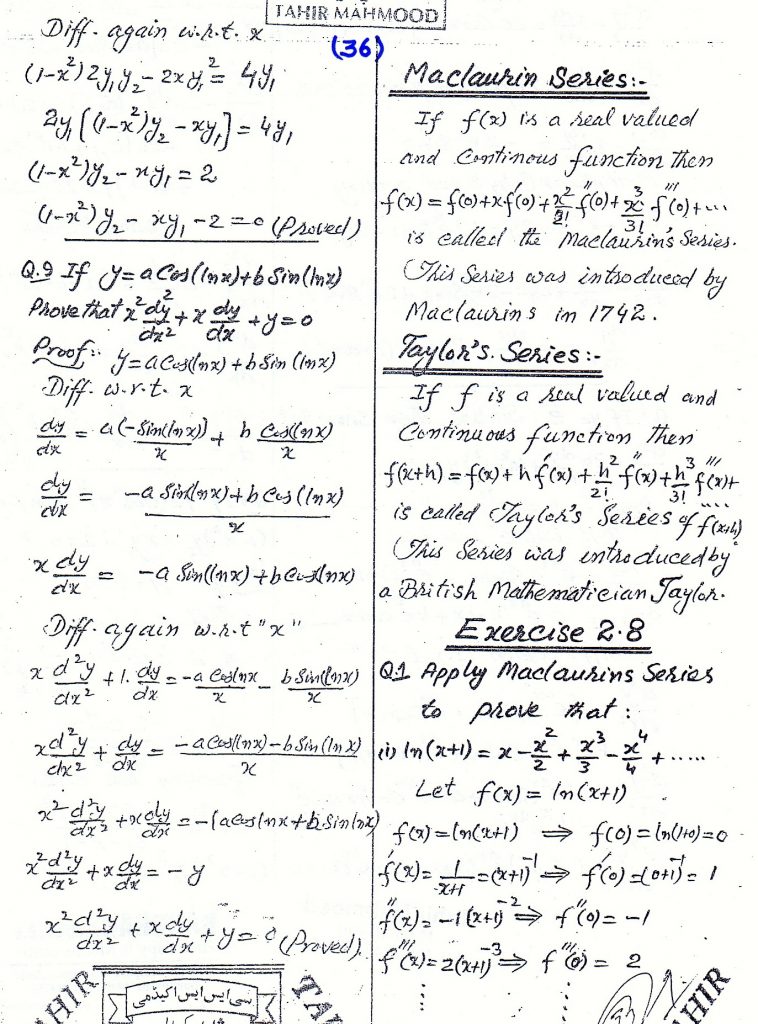 TAHIR MAHMOOD
(36)
Diff. again w.r.t. x
(1-x²)2y₁y₂ - 2xy₁² = 4y₁
2y₁[(1-x²)y₂ - xy₁] = 4y₁
(1-x²)y₂ - xy₁ = 2
(1-x²)y₂ - xy₁ - 2 = 0 (Proved)
Q.9 If y = a Cos(lnx) + b Sin(lnx)
Prove that x² d²y/dx² + x dy/dx + y = 0
Proof:- y = a Cos(lnx) + b Sin(lnx)
Diff. w.r.t. x
dy/dx = a(-Sin(lnx))/x + b Cos(lnx)/x
dy/dx = (-a Sin(lnx) + b Cos(lnx))/x
x dy/dx = -a Sin(lnx) + b Cos(lnx)
Diff. again w.r.t "x"
x d²y/dx² + 1. dy/dx = -a Cos(lnx)/x - b Sin(lnx)/x
x d²y/dx² + dy/dx = (-a Cos(lnx) - b Sin(lnx))/x
x² d²y/dx² + x dy/dx = -(a cos lnx + b Sin lnx)
x² d²y/dx² + x dy/dx = -y
x² d²y/dx² + x dy/dx + y = 0 (Proved).
Maclaurin Series:-
If f(x) is a real valued
and Continous function then
f(x) = f(0) + xf′(0) + x²/2! f″(0) + x³/3! f‴(0) + ...
is called the Maclaurin's Series.
This Series was introduced by
Maclaurins in 1742.
Taylor's. Series:-
If f is a real valued and
Continuous function then
f(x+h) = f(x) + h f′(x) + h²/2! f″(x) + h³/3! f‴(x) + ....
is called Taylor's Series of f(x+h)
This Series was introduced by
a British Mathematician Taylor.
Exercise 2.8
Q.1 Apply Maclaurins Series
to prove that :
(i) ln(x+1) = x - x²/2 + x³/3 - x⁴/4 + .....
Let f(x) = ln(x+1)
f(x) = ln(x+1) ⟹ f(0) = ln(1+0) = 0
f′(x) = 1/(x+1) = (x+1)⁻¹ ⟹ f′(0) = (0+1)⁻¹ = 1
f″(x) = -1(x+1)⁻² ⟹ f″(0) = -1
f‴(x) = 2(x+1)⁻³ ⟹ f‴(0) = 2
سی ایس ایس اکیڈمی